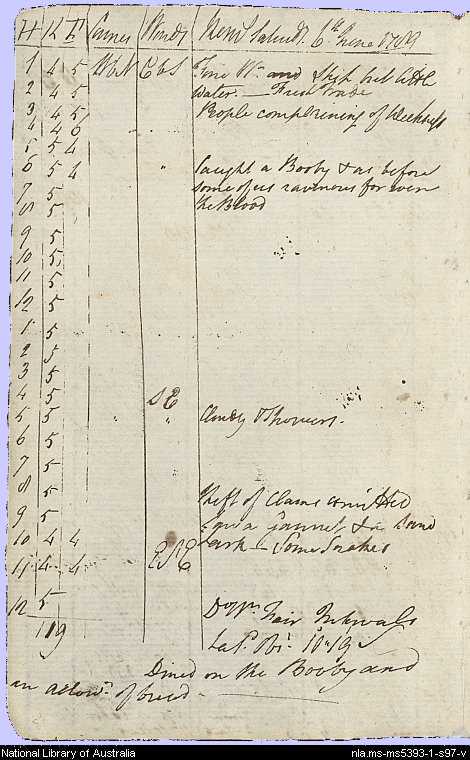 H K F Courses Winds New Holland. 6th June 1789
1 4 5 West EbS Fine Wr. and Ship but little
2 4 5 water. — Fresh Trade
3 4 5 People complaining of Weakness
4 4 6 " "
5 5 4
6 5 4 " Caught a Booby & as before
7 5 some of us ravenous for even
8 5 the Blood
9 5
10 5
11 5
12 5
1 5
2 5
3 5
4 5 SE
5 5 " " Cloudy & Showers.
6 5
7 5
8 5 Theft of Clams committed
9 5 Gannet & a Sand
10 4 4 Lark — Some Snakes
11 4 4 ESE
12 5 Do. Fair Intervals
119 Latd. Obs. 10..19
Dined on the Booby and
an allowce. of bread.
National Library of Australia nla.ms-ms5393-1-s97-v